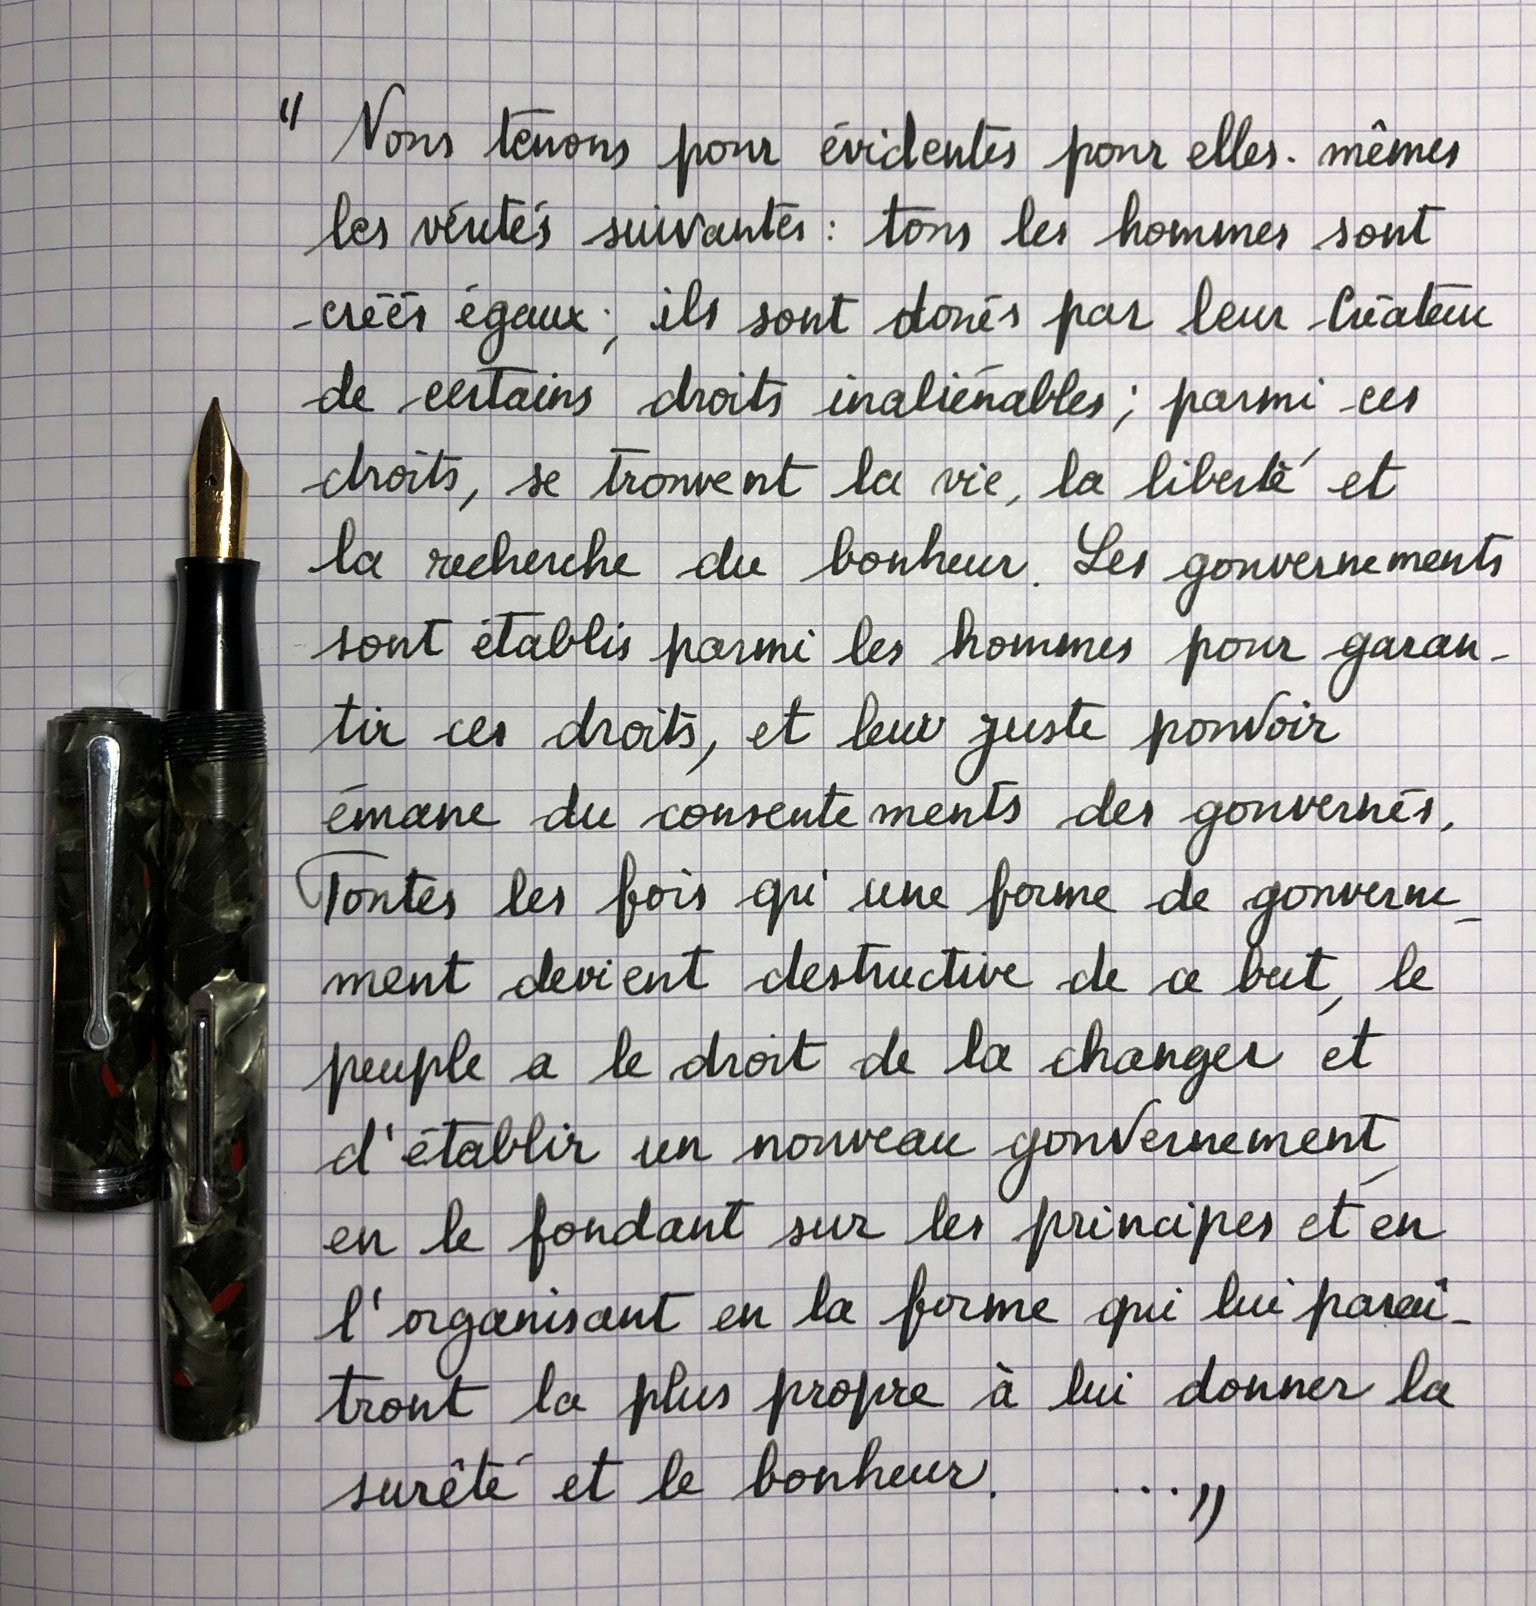 " Nous tenons pour évidentes pour elles-mêmes
les vérités suivantes : tous les hommes sont
créés égaux ; ils sont doués par leur Créateur
de certains droits inaliénables ; parmi ces
droits, se trouvent la vie, la liberté et
la recherche du bonheur. Les gouvernements
sont établis parmi les hommes pour garan-
tir ces droits, et leur juste pouvoir
émane du consentements des gouvernés.
Toutes les fois qu'une forme de gouverne-
ment devient destructive de ce but, le
peuple a le droit de la changer et
d'établir un nouveau gouvernement,
en le fondant sur les principes et en
l'organisant en la forme qui lui paraî-
tront la plus propre à lui donner la
surêté et le bonheur. ..."